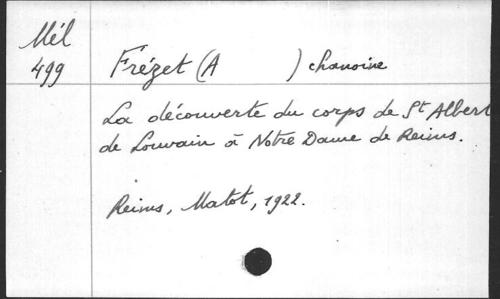 Mél
499
Frézet (A ) chanoine
La découverte du corps de St Albert
de Louvain à Notre Dame de Reims.
Reims, Matot, 1922.